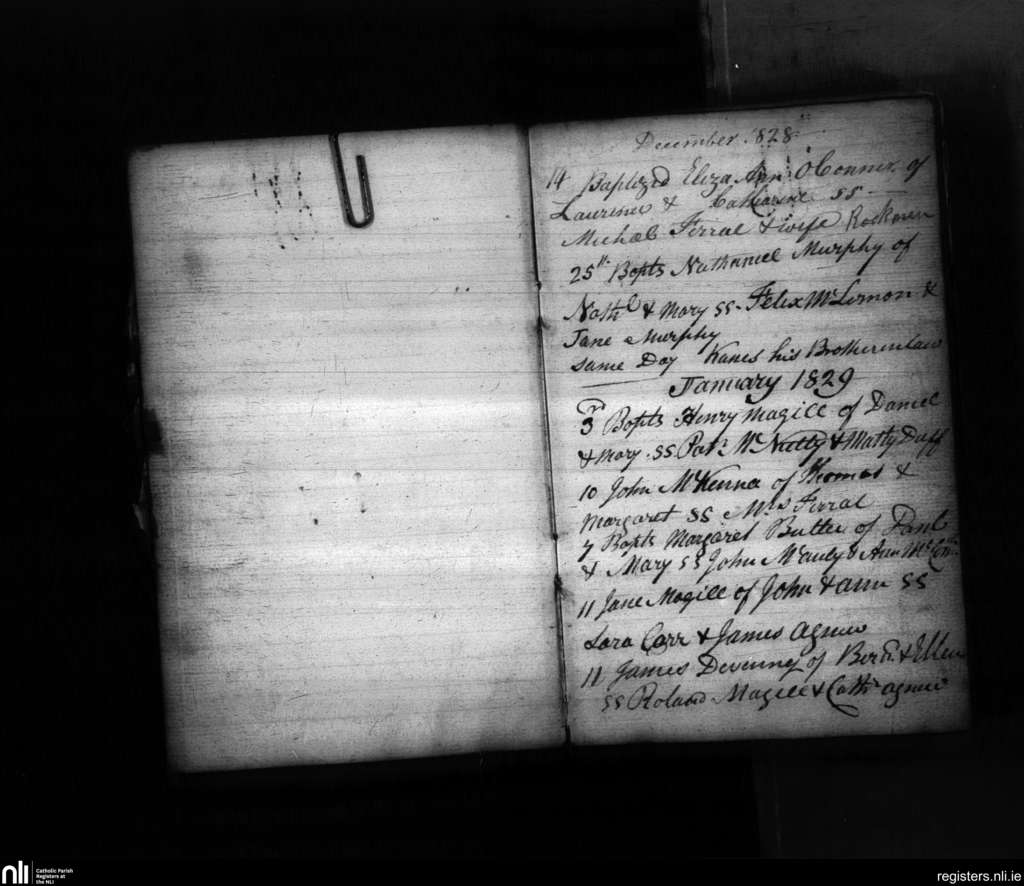 December 1828
14 Baptized Eliza Ann O'Conner of
Laurence & Catharine SS
Michael Ferral & wife Rockmen
25th Bapts Nathaniel Murphy of
Nathl & Mary SS. Felix McLernon &
Jane Murphy
same Day Kanes his Brotherinlaw
January 1829
3 Bapts Henry Magill of Daniel
& Mary. SS. Patk McNutty & Matty Duff
10 John McKenna of Thomas &
Margaret SS Mrs Ferral
7 Bapts Margaret Butler of Paul
& Mary SS John McAuly & Ann
11 Jane Magill of John & ann SS
Sara Carr & James Agnew
11 James Devenney of Bernd. & Ellen
SS Roland Magill & Cathr agnew
nli
Catholic Parish
Registers at
the NLI
registers.nli.ie